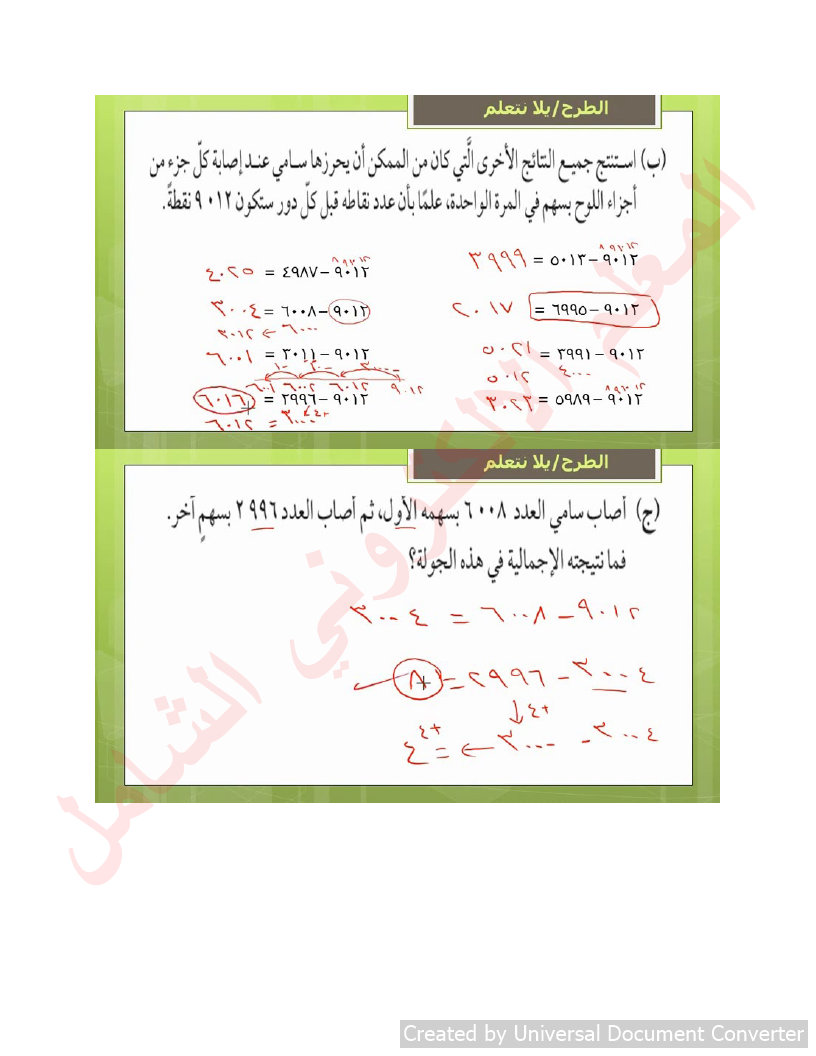 الطرح/يلا نتعلم
(ب) استنتج جميع النتائج الأخرى الَّتي كان من الممكن أن يحرزها سامي عند إصابة كلّ جزء من
أجزاء اللوح بسهم في المرة الواحدة، علمًا بأن عدد نقاطه قبل كلّ دور ستكون ٩٠١٢ نقطةً.
٨ ٩ ١٢
٩٠١٢ – ٥٠١٣ = ٣٩٩٩
٩٠١٢ – ٤٩٨٧ = ٤٠٢٥
٩٠١٢ – ٦٩٩٥ = ٢٠١٧
٩٠١٢ – ٦٠٠٨ = ٣٠٠٤
٦٠٠٠ ← ٣٠١٢
٩٠١٢ – ٣٩٩١ = ٥٠٢١
٩٠١٢ – ٣٠١١ = ٦٠٠١
٤٠٠٠ ٥٠١٢
٩٠١٢ ٦٠١٢ ٦٠٠٢ ٦٠٠١
٩٠١٢ – ٥٩٨٩ = ٣٠٢٣
٩٠١٢ – ٢٩٩٦ = ٦٠١٦
٤+
٣٠٠٠ = ٦٠١٢
الطرح/يلا نتعلم
(ج) أصاب سامي العدد ٦٠٠٨ بسهمه الأول، ثم أصاب العدد ٢٩٩٦ بسهمٍ آخر.
فما نتيجته الإجمالية في هذه الجولة؟
٩٠١٢ – ٦٠٠٨ = ٣٠٠٤
٣٠٠٤ – ٢٩٩٦ = ٨
٤+
٣٠٠٤ – ٣٠٠٠ ← = ٤ ٤+
المعلم الالكتروني الشامل
Created by Universal Document Converter